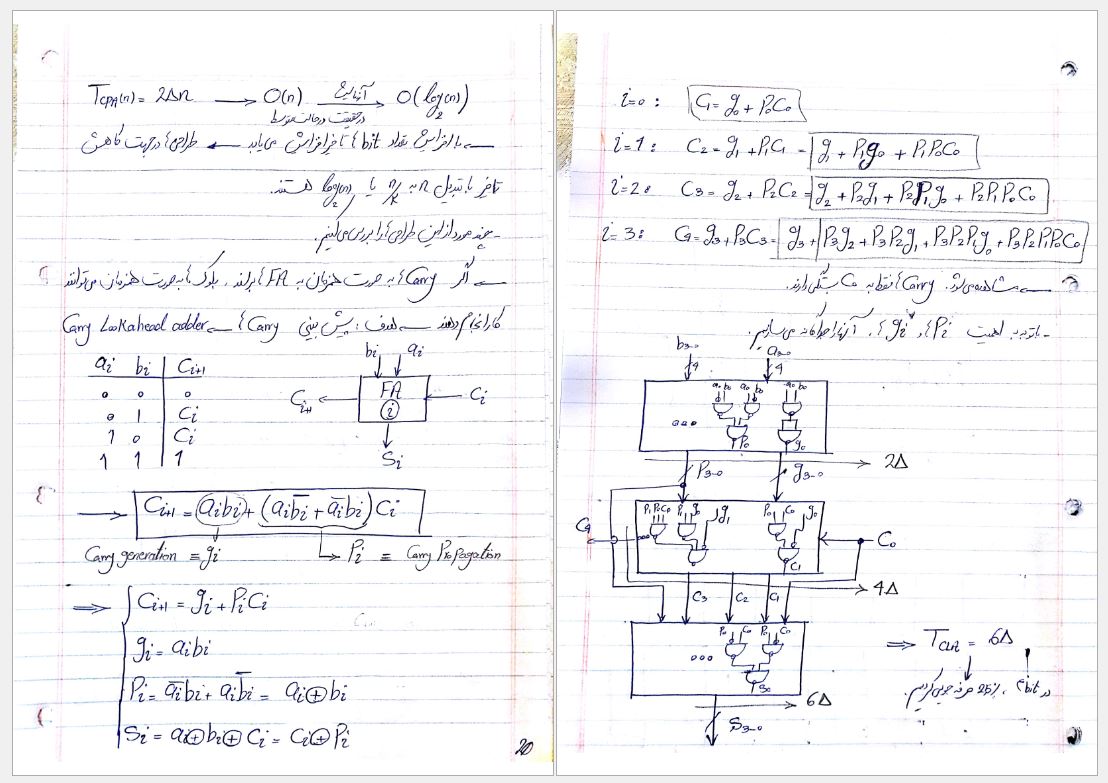 T_CPA(n) = 2Δn → O(n) آنها به → O(log₂(n))
در حقیقت
← با افزایش تعداد bit ها تاخیر افزایش می‌یابد ← طراحی‌ها در جهت کاهش
تاخیر با تبدیل n به n/k یا log₂(n) هستند.
- چند مورد از این طراحی‌ها را بررسی می‌کنیم.
← اگر Carry ها به صورت همزمان به FA ها برسند، بلوک‌ها به صورت همزمان می‌توانند
کار انجام دهند ← هدف: پیش بینی Carry ها ← Carry Lookahead adder
ai bi Ci+1
0 0 0
0 1 Ci
1 0 Ci
1 1 1
bi ai
Ci+1 FA i Ci
Si
→ Ci+1 = aibi + (aib̄i + āibi) Ci
Carry generation ≡ gi → Pi ≡ Carry Propagation
⇒ Ci+1 = gi + PiCi
gi = aibi
Pi = āibi + aib̄i = ai⊕bi
Si = ai⊕bi⊕Ci = Ci⊕Pi
20
i=0: C1 = g0 + P0C0
i=1: C2 = g1 + P1C1 = g1 + P1g0 + P1P0C0
i=2: C3 = g2 + P2C2 = g2 + P2g1 + P2P1g0 + P2P1P0C0
i=3: C4 = g3 + P3C3 = g3 + P3g2 + P3P2g1 + P3P2P1g0 + P3P2P1P0C0
← مشاهده می‌شود Carry ها فقط به C0 بستگی دارند.
- با توجه به اهمیت Pi ها و gi ها، آنها را جداگانه می‌سازیم.
b3-0 a3-0
4 4
a0 b0 a0 b0 a0 b0
... P0 g0
P3-0 g3-0 → 2Δ
P1P0C0 P1 g0 g1 P0 C0 g0
C4 ... C1 C0
C3 C2 C1 → 4Δ
P0 C0 P0 C0
... S0
→ 6Δ
S3-0
⇒ T_CLA = 6Δ
در 4bit، 25% صرفه جویی کردیم.